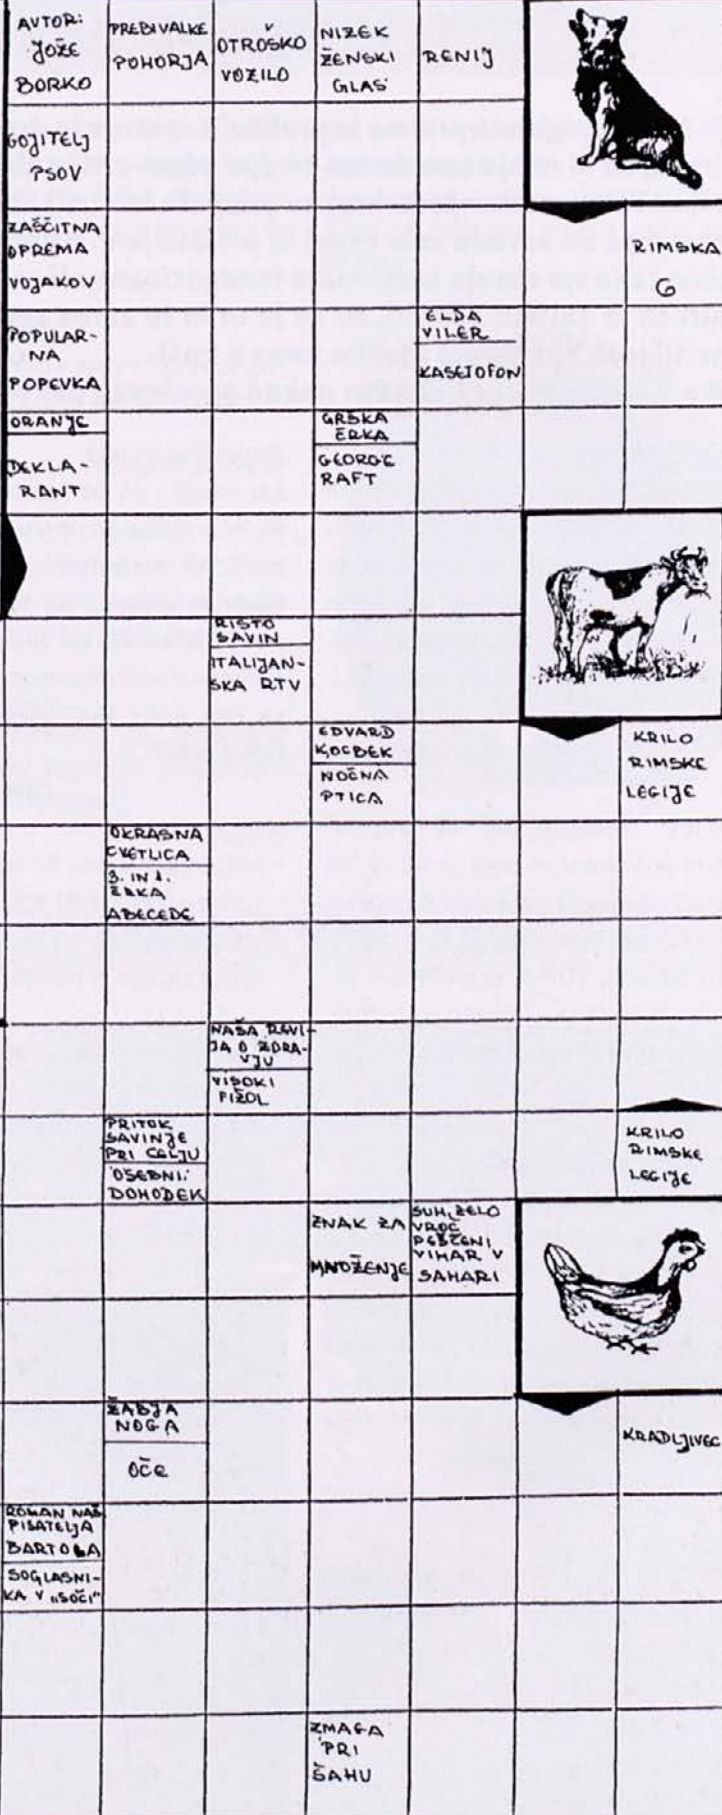 AVTOR:
JOŽE
BORKO
PREBIVALKE
POHORJA
OTROŠKO
VOZILO
NIZEK
ŽENSKI
GLAS
RENIJ
GOJITELJ
PSOV
ZAŠČITNA
OPREMA
VOJAKOV
RIMSKA
6
POPULAR-
NA
POPEVKA
ELDA
VILER
KASETOFON
ORANJE
DEKLA-
RANT
GRŠKA
ČRKA
GEORGE
RAFT
RISTO
SAVIN
ITALIJAN-
SKA RTV
EDVARD
KOCBEK
NOČNA
PTICA
KRILO
RIMSKE
LEGIJE
OKRASNA
CVETLICA
3. IN 1.
ČRKA
ABECEDE
NAŠA REVI-
JA O ZDRA-
VJU
VISOKI
FIŽOL
PRITOK
SAVINJE
PRI CELJU
OSEBNI
DOHODEK
KRILO
RIMSKE
LEGIJE
ZNAK ZA
MNOŽENJE
SUH, ZELO
VROČ
PEŠČENI
VIHAR V
SAHARI
ŽABJA
NOGA
OČE
KRADLJIVEC
ROMAN NAŠ.
PISATELJA
BARTOLA
SOGLASNI-
KA V "SOČI"
ZMAGA
PRI
ŠAHU